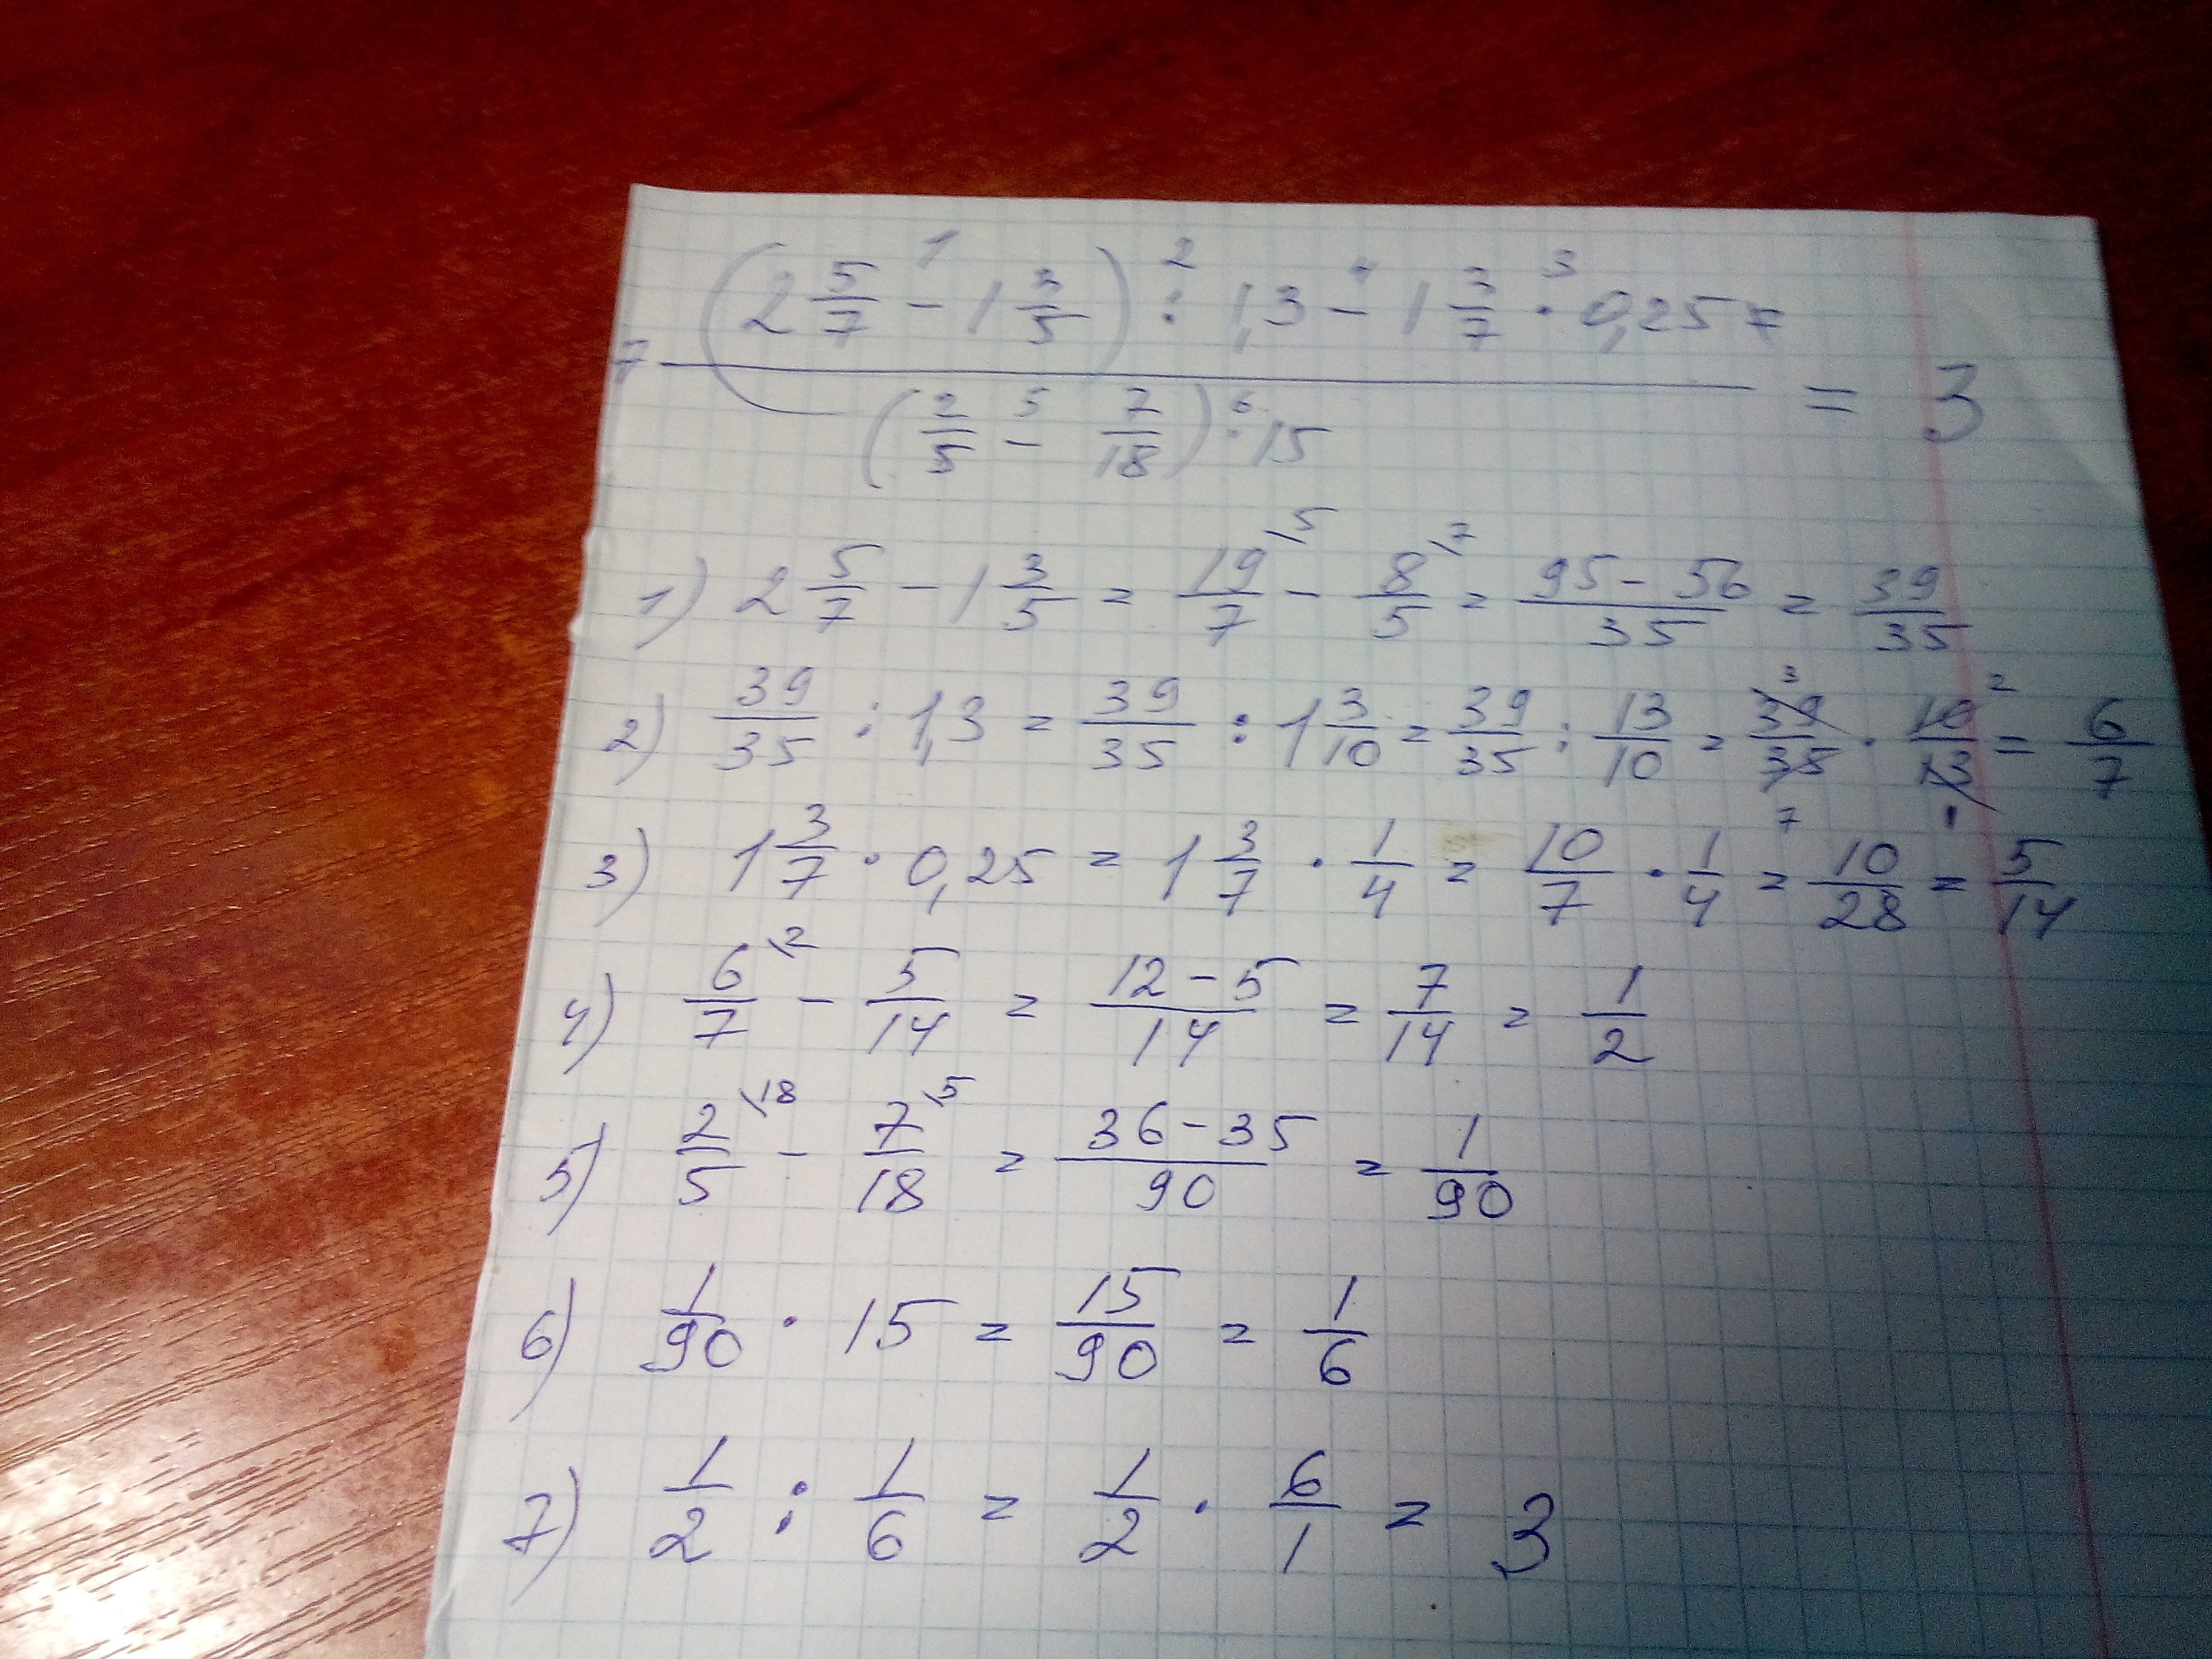 (2 5/7 - 1 3/5) : 1,3 - 1 3/7 · 0,25 =
(2/5 - 7/18) · 15 = 3
1) 2 5/7 - 1 3/5 = 19/7 \5 - 8/5 \7 = 95-56/35 = 39/35
2) 39/35 : 1,3 = 39/35 : 1 3/10 = 39/35 : 13/10 = 39/35 · 10/13 = 6/7
3) 1 3/7 · 0,25 = 1 3/7 · 1/4 = 10/7 · 1/4 = 10/28 = 5/14
4) 6/7 \2 - 5/14 = 12-5/14 = 7/14 = 1/2
5) 2/5 \18 - 7/18 \5 = 36-35/90 = 1/90
6) 1/90 · 15 = 15/90 = 1/6
7) 1/2 : 1/6 = 1/2 · 6/1 = 3